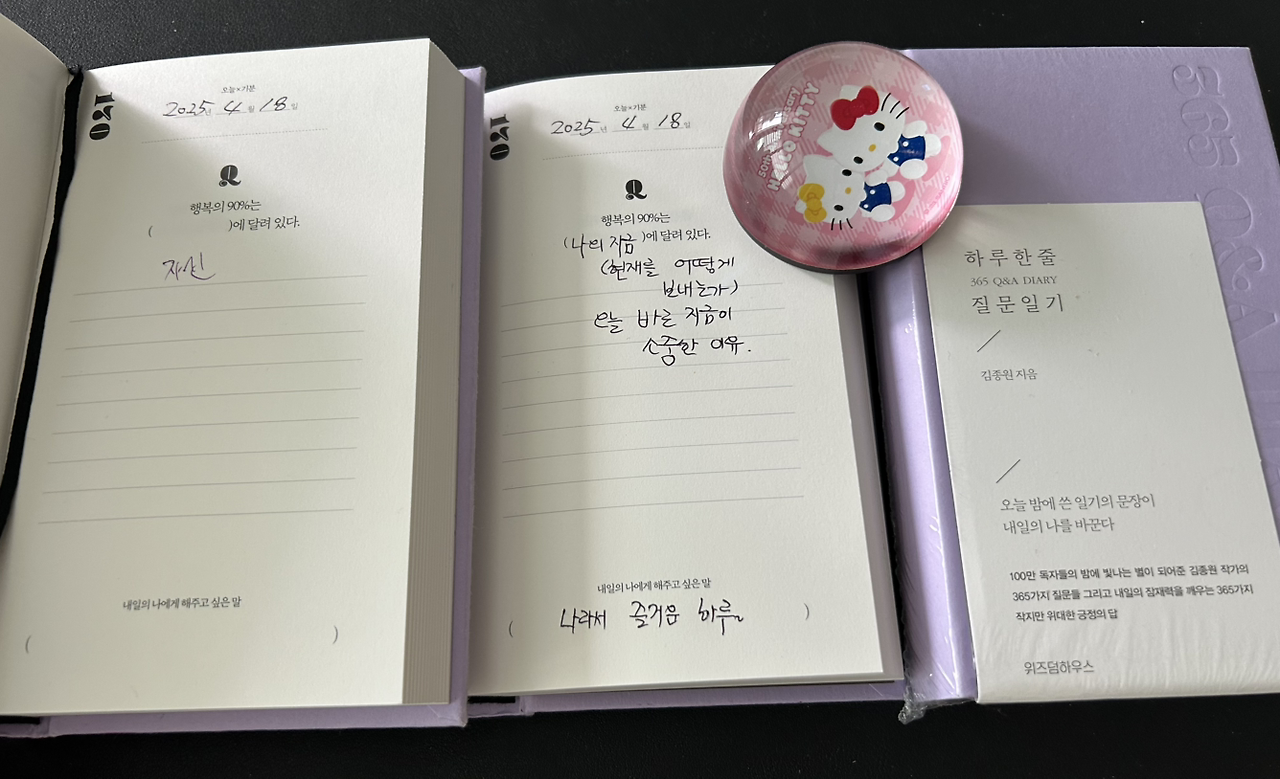 170
오늘×기분
2025년 4월 18일
Q
행복의 90%는
( )에 달려 있다.
자신
내일의 나에게 해주고 싶은 말
( )
170
오늘×기분
2025년 4월 18일
Q
행복의 90%는
(나의 지금)에 달려 있다.
(현재를 어떻게
보내는가)
오늘 바로 지금이
소중한 이유.
내일의 나에게 해주고 싶은 말
( 나라서 즐거운 하루 )
50th Anniversary
HELLO KITTY
365 Q&A
하루 한 줄
365 Q&A DIARY
질문 일기
김종원 지음
오늘 밤에 쓴 일기의 문장이
내일의 나를 바꾼다
100만 독자들의 밤에 빛나는 별이 되어준 김종원 작가의
365가지 질문들 그리고 내일의 잠재력을 깨우는 365가지
작지만 위대한 긍정의 답
위즈덤하우스